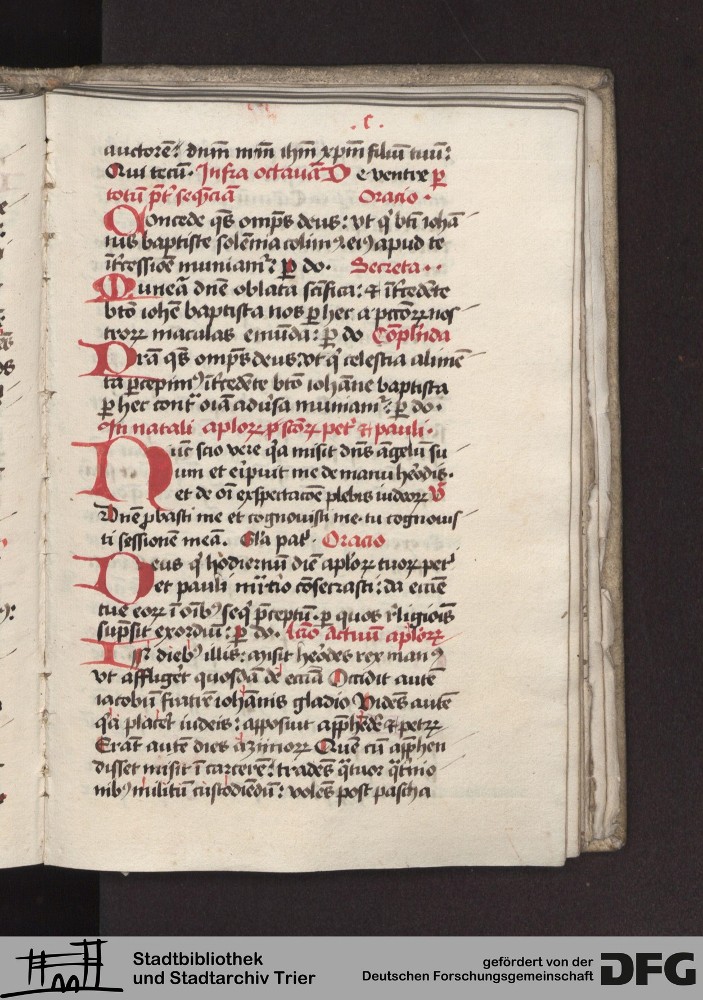 .c.
auctorē: dnm̄ nr̄m ihm̄ xpm̄ filiū tuū:
Qui tecū. Infra octauā De ventre ꝑ
totū pt̄ seqn̄ciā Oracio.
Concede qs̄ omp̄s deus: vt q̇ bt̄i iohā
nis baptiste solēnia colimꝰ eiꝰ apud te
īt̄cessiōe muniamᷣ: ꝑ do. Secreta..
Munēa dn̄e oblata sc̄ifica: ⁊ īt̄cedēte
bt̄o ioh̄e baptista nos ꝑ hec a pctōꝝ nos
troꝝ maculas emūda: ꝑ do Cōpl̄nda
Pr̄a qs̄ omp̄s deus: vt q̇ celestia alimē
ta ꝑcepimꝰ īt̄cedēte bt̄o iohāne baptista
ꝑ hec contᷓ oīa adūsa muniamᷣ: ꝑ do.
In natali aploꝝ scōꝝ petᷣ ⁊ pauli.
Nūc scio vere qa misit dn̄s āgelū su
um et eripuit me de manu herodis.
et de oī exspectacōe plebis iudeoꝝ v̄
Dn̄e ꝓbasti me et cognouisti me. tu cognouis
ti sessionem meā. Gl̄a patᷣ. Oracio
Deus q̇ hodiernū diē aploꝝ tuoꝝ petᷣ
et pauli mr̄tᷣio cōsecrasti: da eccīe
tue eoꝝ ī oībꝰ seqᷣ p̄ceptū. ꝑ quos r̄ligiōis
sūpsit exordiū: ꝑ do. Lc̄io Actuū aploꝝ
In diebꝰ illis: misit herōdes rex manꝰ
vt affliget quosdā de eccīa Occidit autē
iacobū fratrē iohānis gladio Vidēs autē
qa placet iudeis: apposuit app̄hēdē ⁊ petꝝ
Erāt autē dies azimoꝝ Quē cū app̄hen
disset misit ī carcerē: tradēs qᷓtuor qᷓtᷣnio
nibꝰ militū custodiēdū: volēs post pascha
Stadtbibliothek
und Stadtarchiv Trier
gefördert von der
Deutschen Forschungsgemeinschaft
DFG